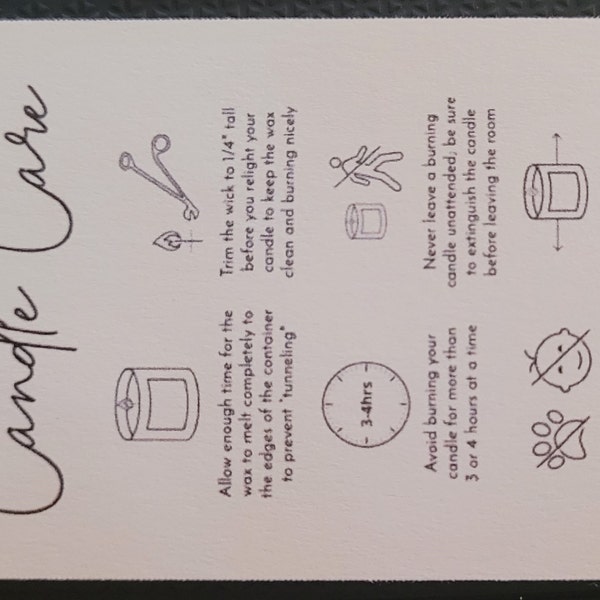 Candle Care
Allow enough time for the
wax to melt completely to
the edges of the container
to prevent "tunneling"
Trim the wick to 1/4" tall
before you relight your
candle to keep the wax
clean and burning nicely
3-4hrs
Avoid burning your
candle for more than
3 or 4 hours at a time
Never leave a burning
candle unattended; be sure
to extinguish the candle
before leaving the room